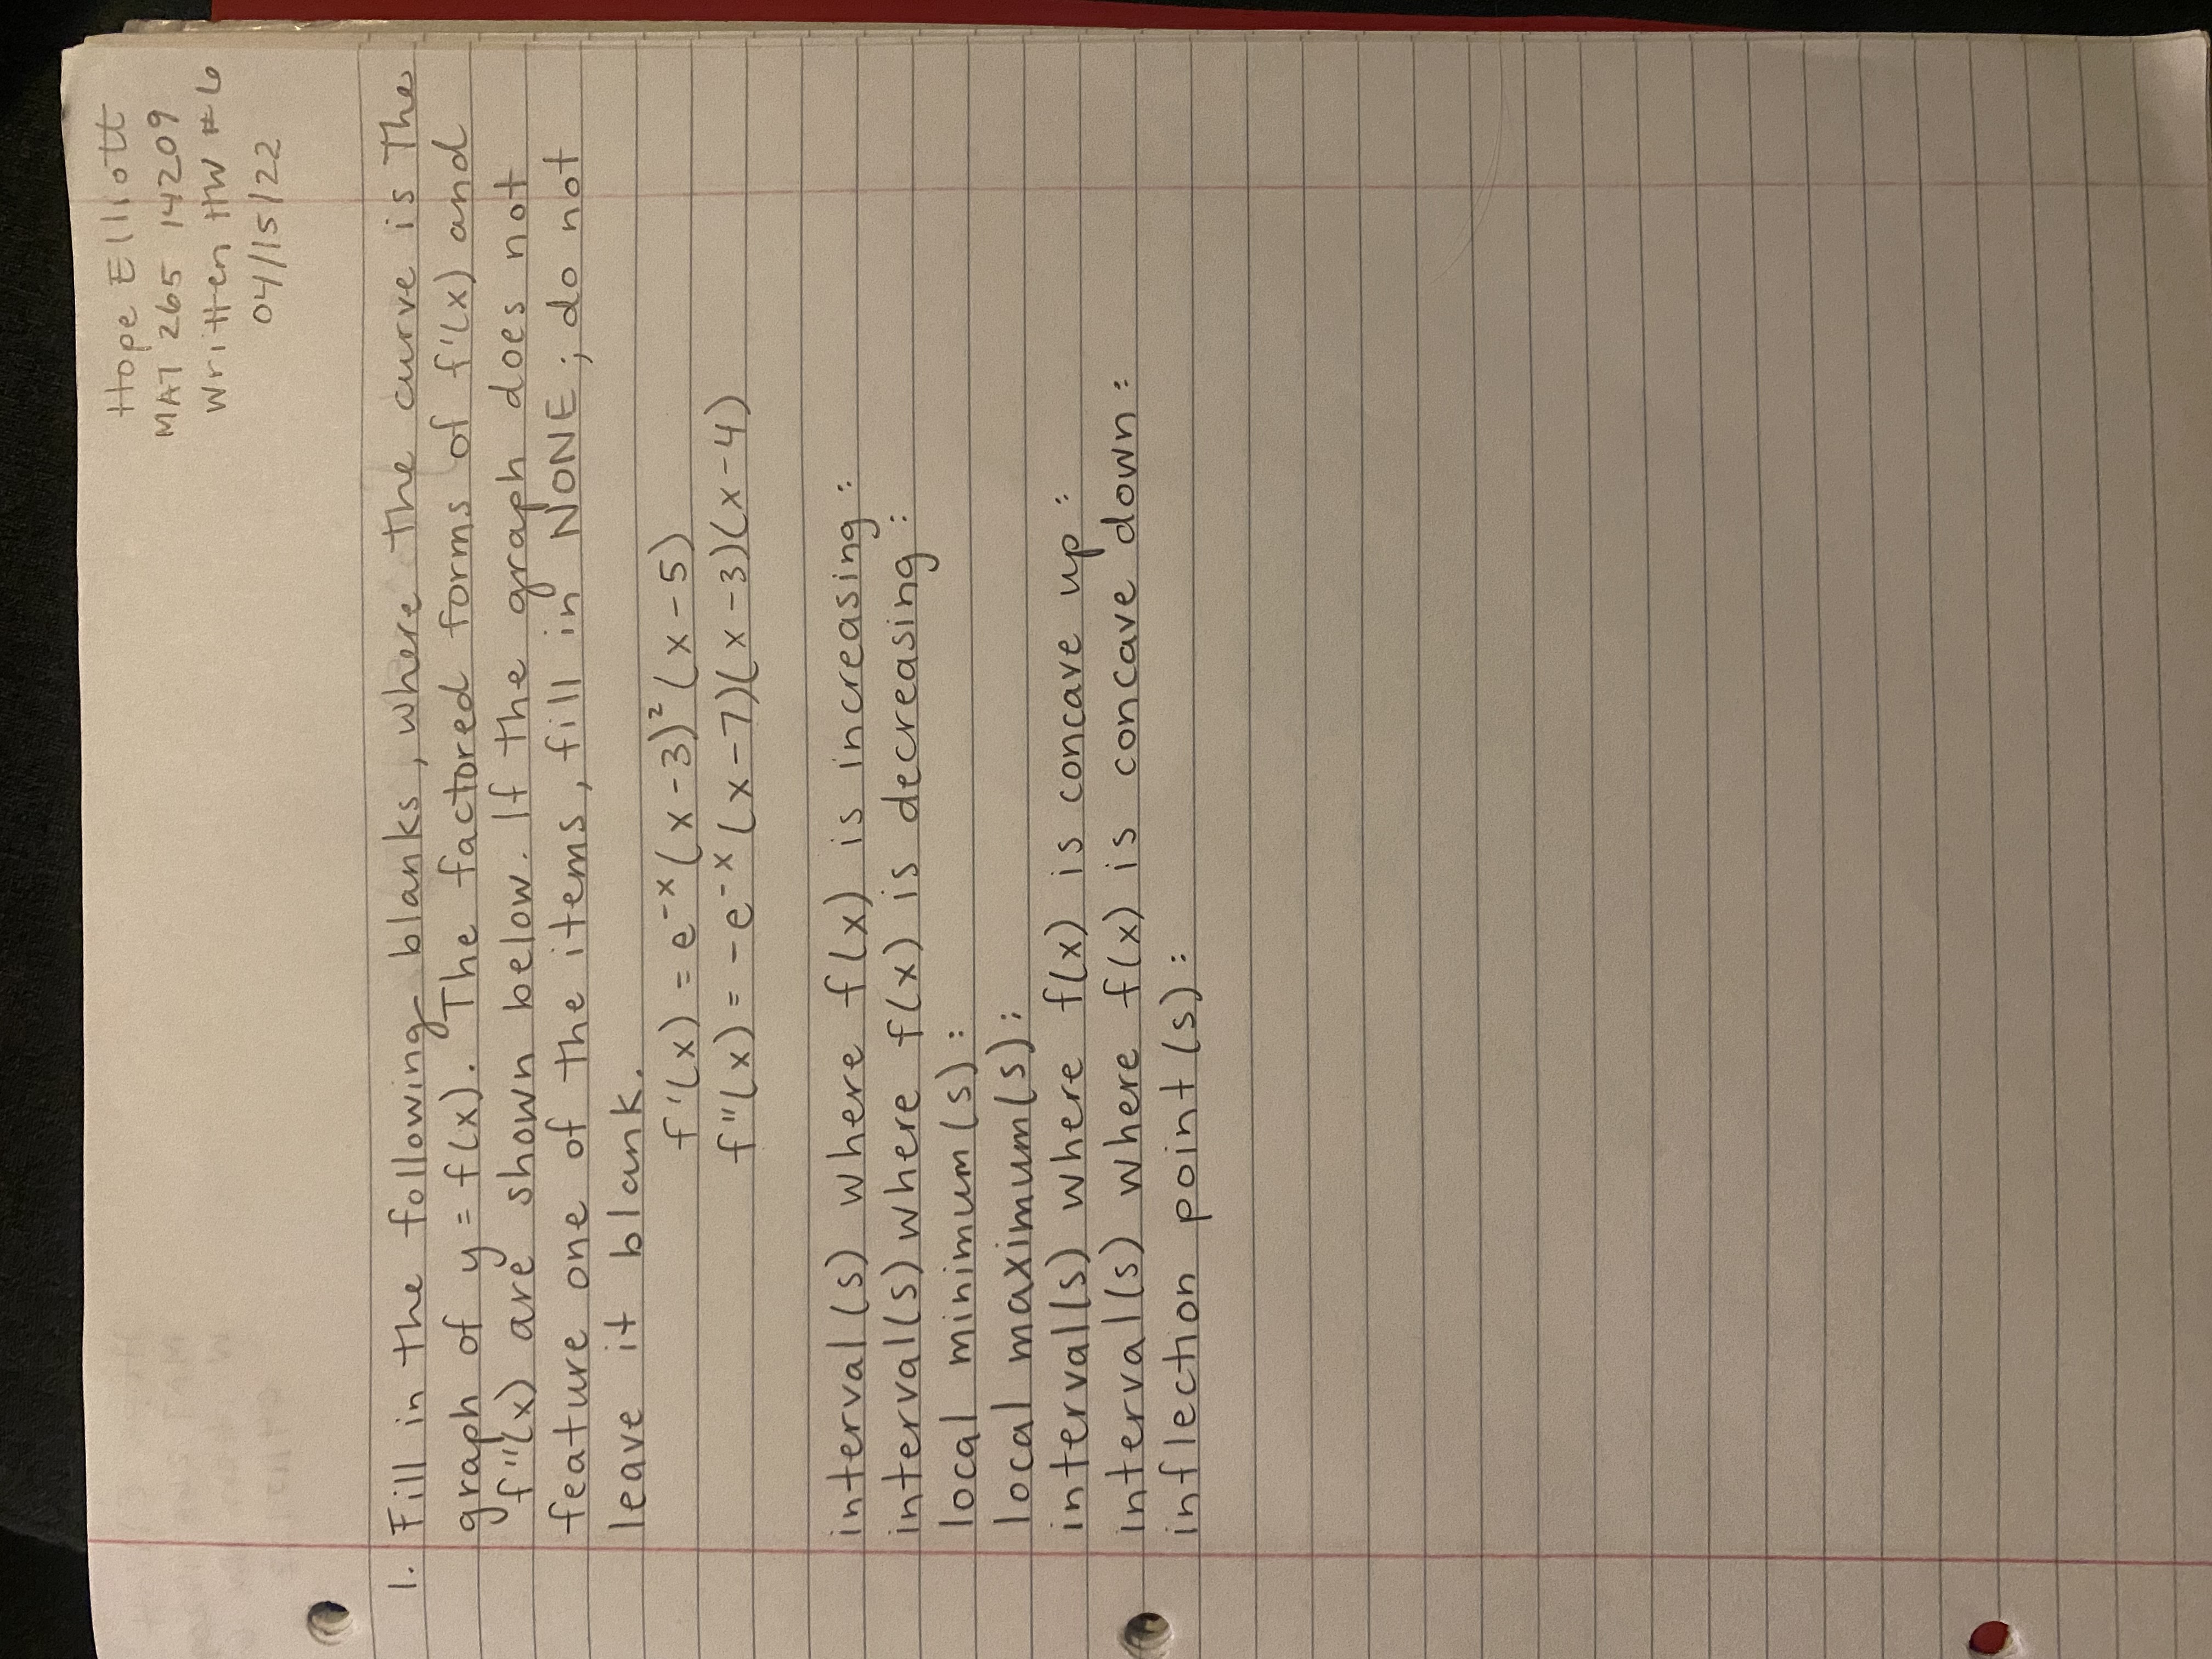 Hope Elliott
MAT 265 14209
Written HW #6
04/15/22
1. Fill in the following blanks, where the curve is the
graph of y = f(x). The factored forms of f'(x) and
f''(x) are shown below. If the graph does not
feature one of the items, fill in NONE; do not
leave it blank.
f'(x) = e⁻ˣ(x-3)²(x-5)
f''(x) = -e⁻ˣ(x-7)(x-3)(x-4)
interval(s) where f(x) is increasing:
interval(s) where f(x) is decreasing:
local minimum(s):
local maximum(s):
interval(s) where f(x) is concave up:
interval(s) where f(x) is concave down:
inflection point(s):